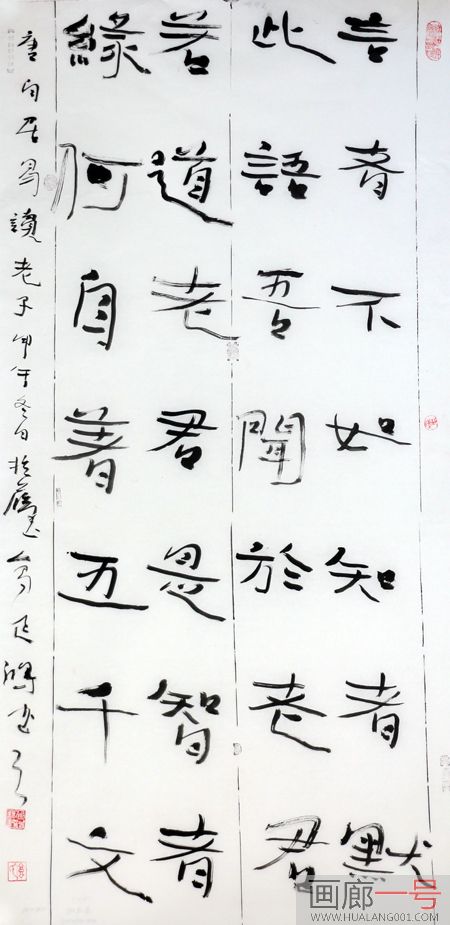 言者不如知者默
此語吾聞於老君
若道老君是智者
緣何自著五千文
唐白居易讀老子甲午冬日於
画廊一号
WWW.HUALANG001.COM